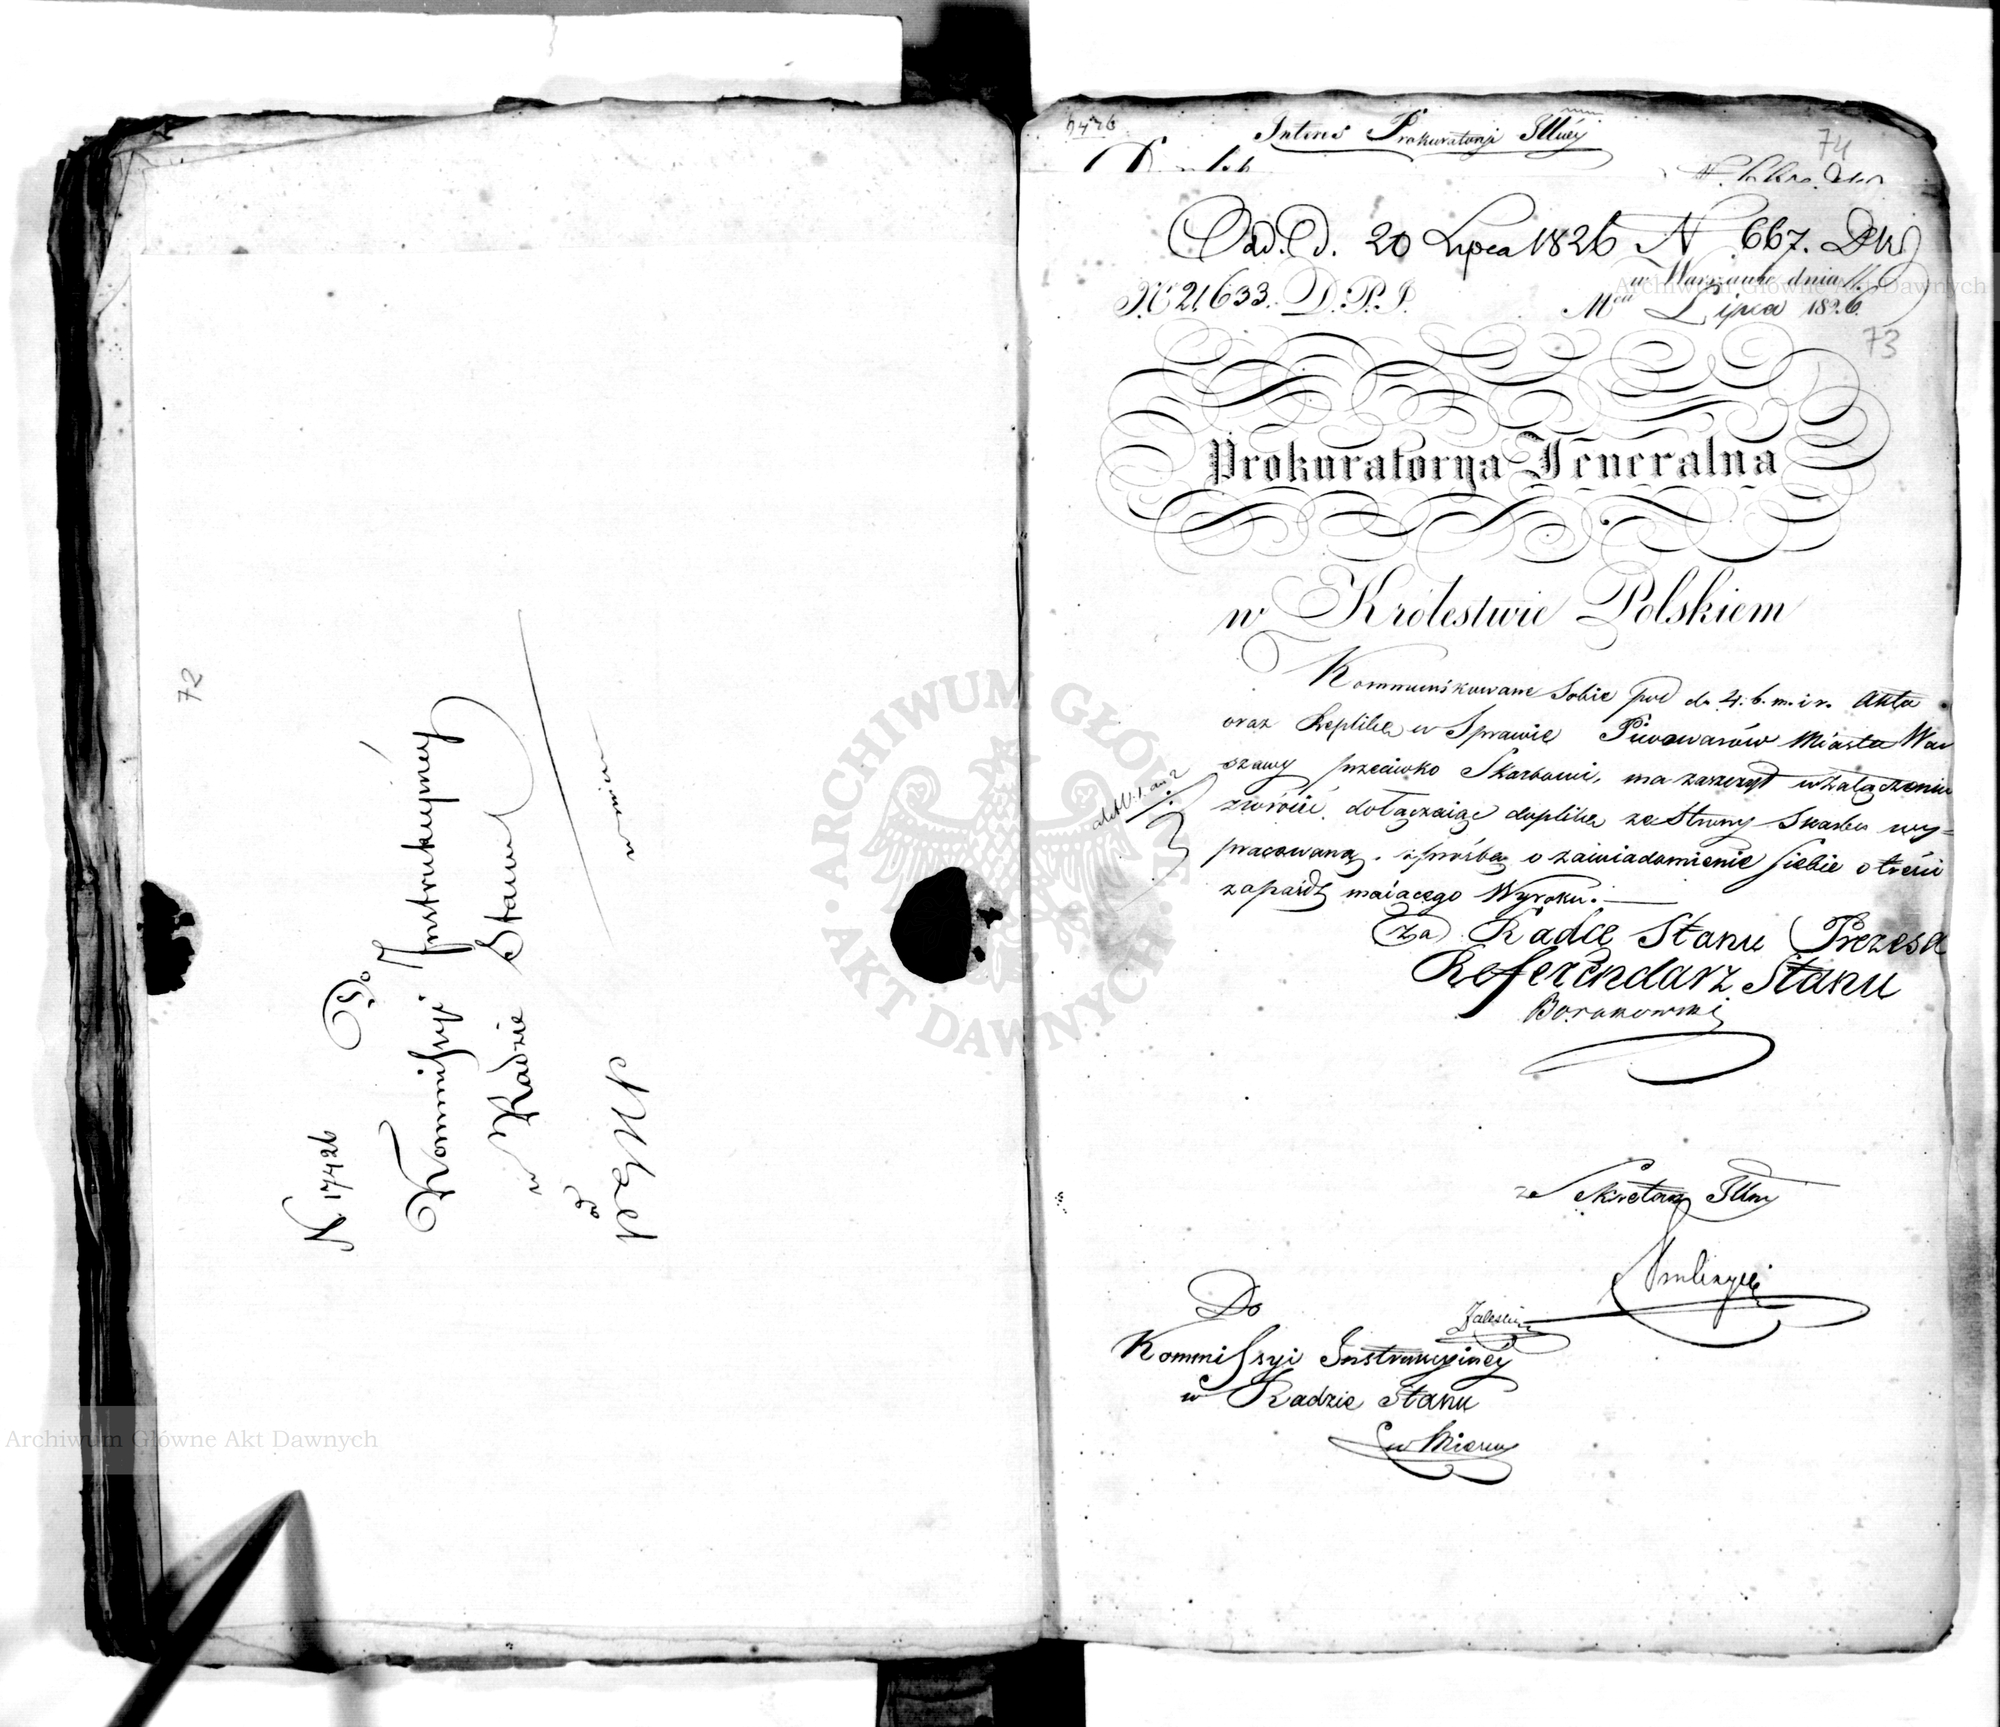 72
N. 17426
Do
Kommissyi Instrukcyinéy
w Radzie Stanu
w mieście
od
74
Interes Prokuratoryi
Odd. d. 20 Lipca 1826 N 667.
w Warszawie dnia 11.
N. 21,633. D.P.J. Mca Lipca 1826.
73
Prokuratorya Jeneralna
w Królestwie Polskiem
Kommunikowane Sobie pod d. 4. b. m. i r. Akta
oraz Replikę w Sprawie Piwowarów Miasta War
szawy przeciwko Skarbowi, ma zaszczyt w załączeniu
zwrócić, dołączaiąc duplikę ze Strony Skarbu wy-
pracowaną, i prośbę o zawiadomienie Siebie o treści
zapaśdź maiącego Wyroku.
(za) Radcę Stanu Prezesa
Referendarz Stanu
Do
Kommissyi Instrukcyinéy
w Radzie Stanu
w Mieyscu
ARCHIWUM GŁÓWNE
AKT DAWNYCH
Archiwum Główne Akt Dawnych
Archiwum Główne Akt Dawnych